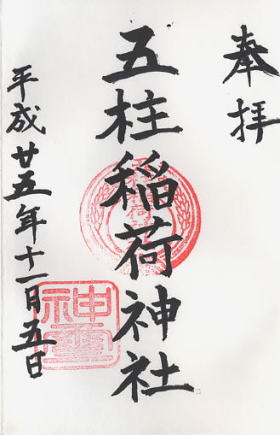 奉拝
五柱稲荷神社
平成廿五年十一月五日
神璽